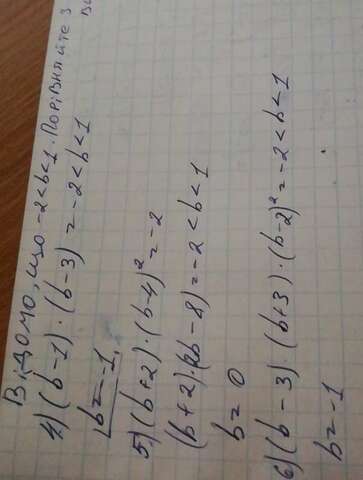 Відомо, що -2<b<1. Порівняйте з
4) (b-1)·(b-3) = -2<b<1
b=-1
5) (b+2)·(b-4)² = -2
(b+2)·(2b-8) = -2<b<1
b=0
6) (b-3)·(b+3)·(b-2)² = -2<b<1
b=-1